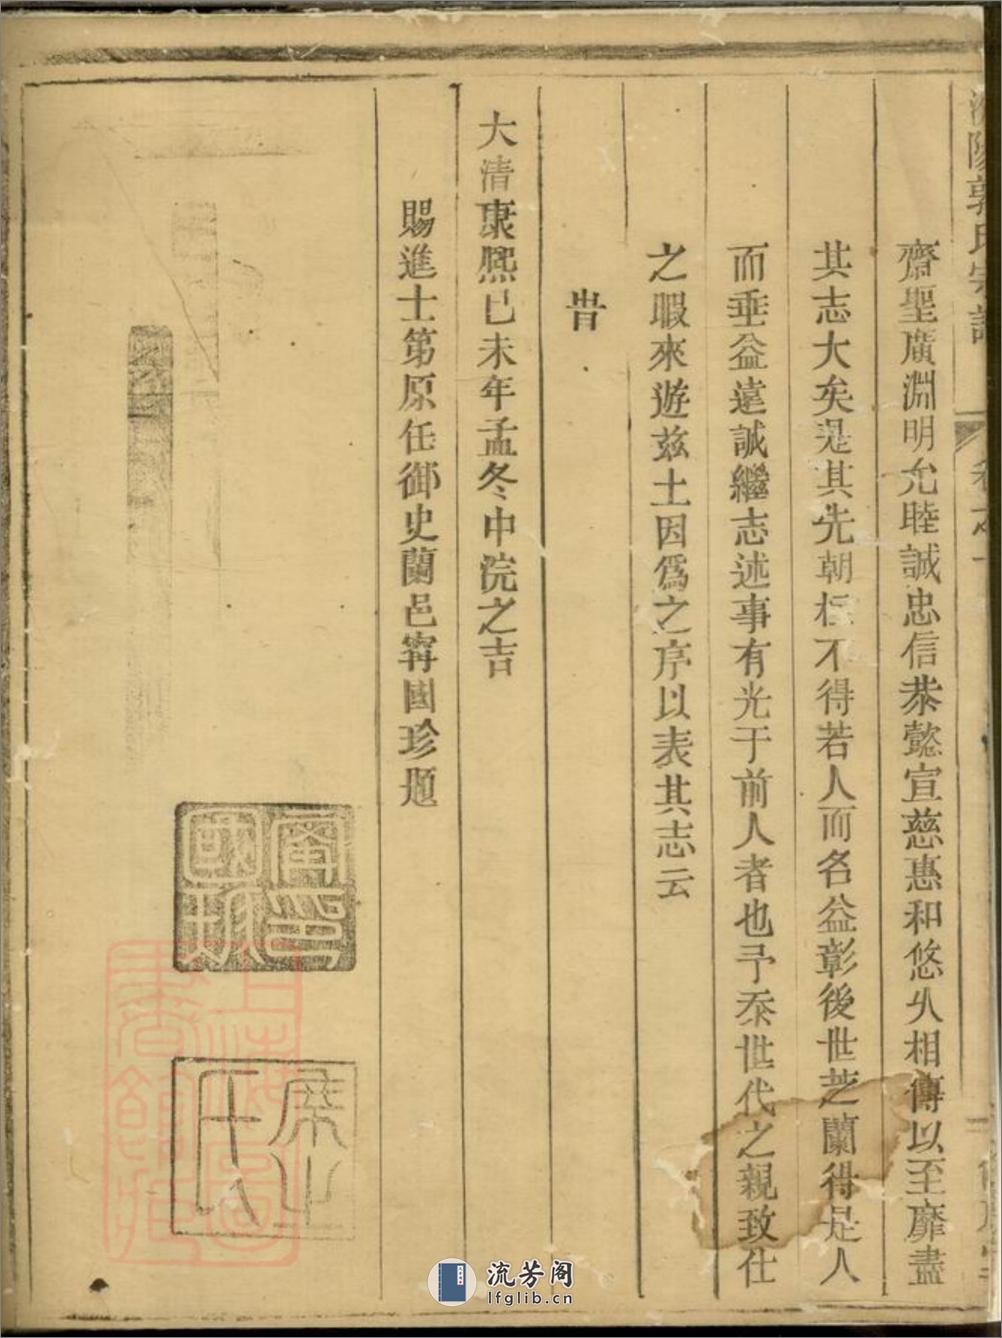 陽郭氏宗譜
齋聖廣淵明允睦誠忠信恭懿宣慈惠和悠久相傳以至靡盡
其志大矣是其先朝柱不得若人而名益彰後世芝蘭得是人
而垂益遠誠繼志述事有光于前人者也予忝世代之親致仕
之暇來遊兹土因爲之序以表其志云
旹
大清康熙己未年孟冬中浣之吉
賜進士第原任御史蘭邑甯國珍題
上海圖書館藏
流芳阁
lfglib.cn